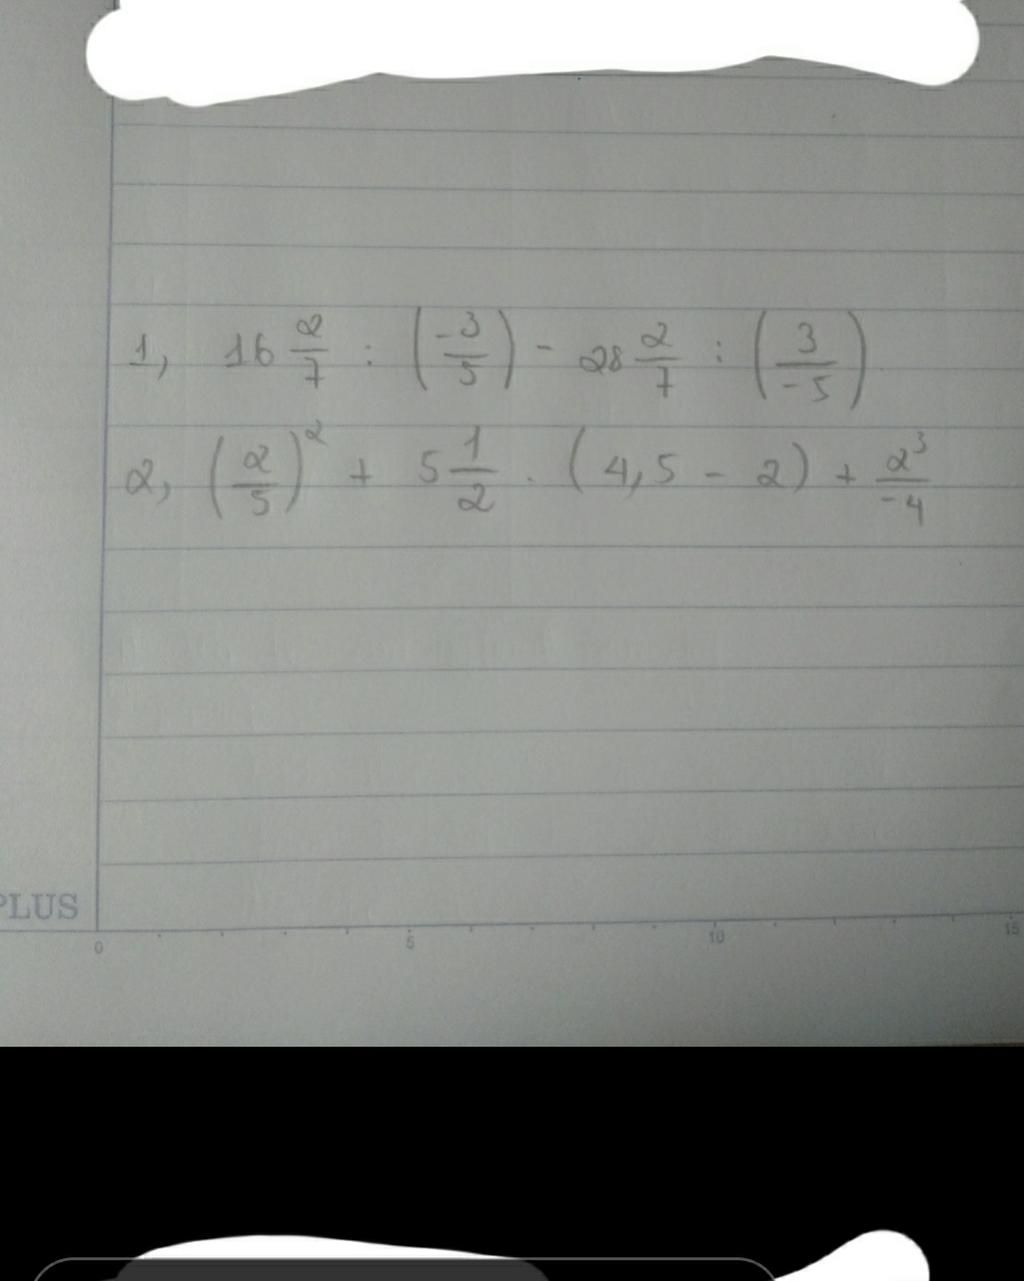 1, 16 2/7 : (-3/5) - 28 2/7 : (3/-5)
2, (2/5)² + 5 1/2 . (4,5 - 2) + 2³/-4
PLUS
0 5 10 15